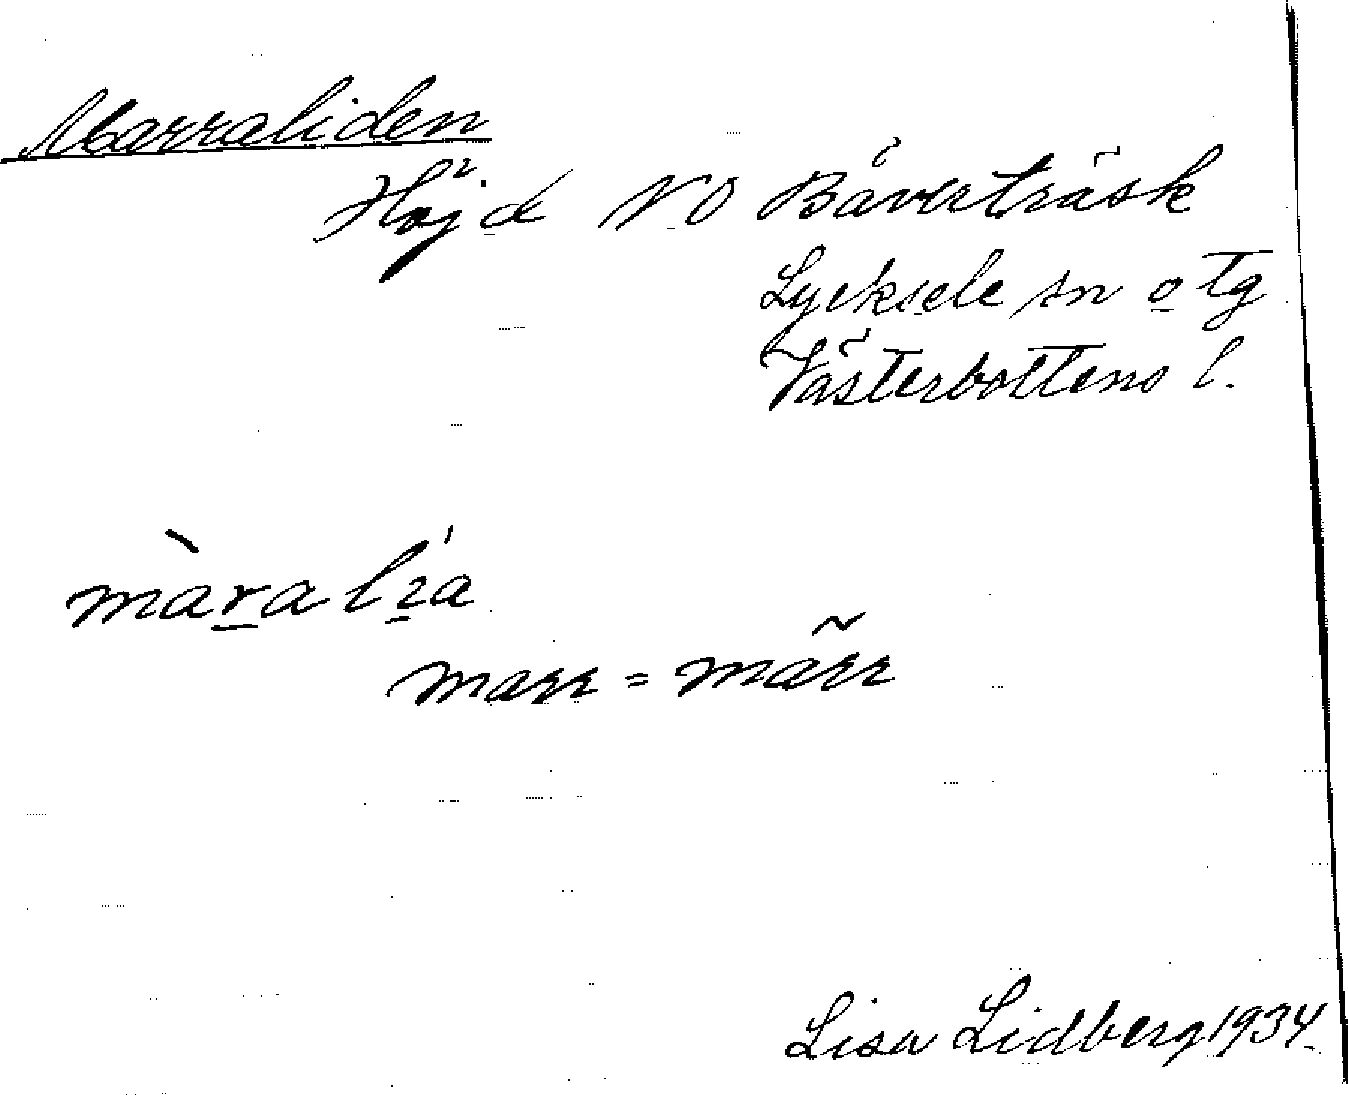 Marraliden
Höjd NO Bäverträsk
Lycksele sn o tg
Västerbottens l.
màralı́a
marr = märr
Lisa Lidberg 1934